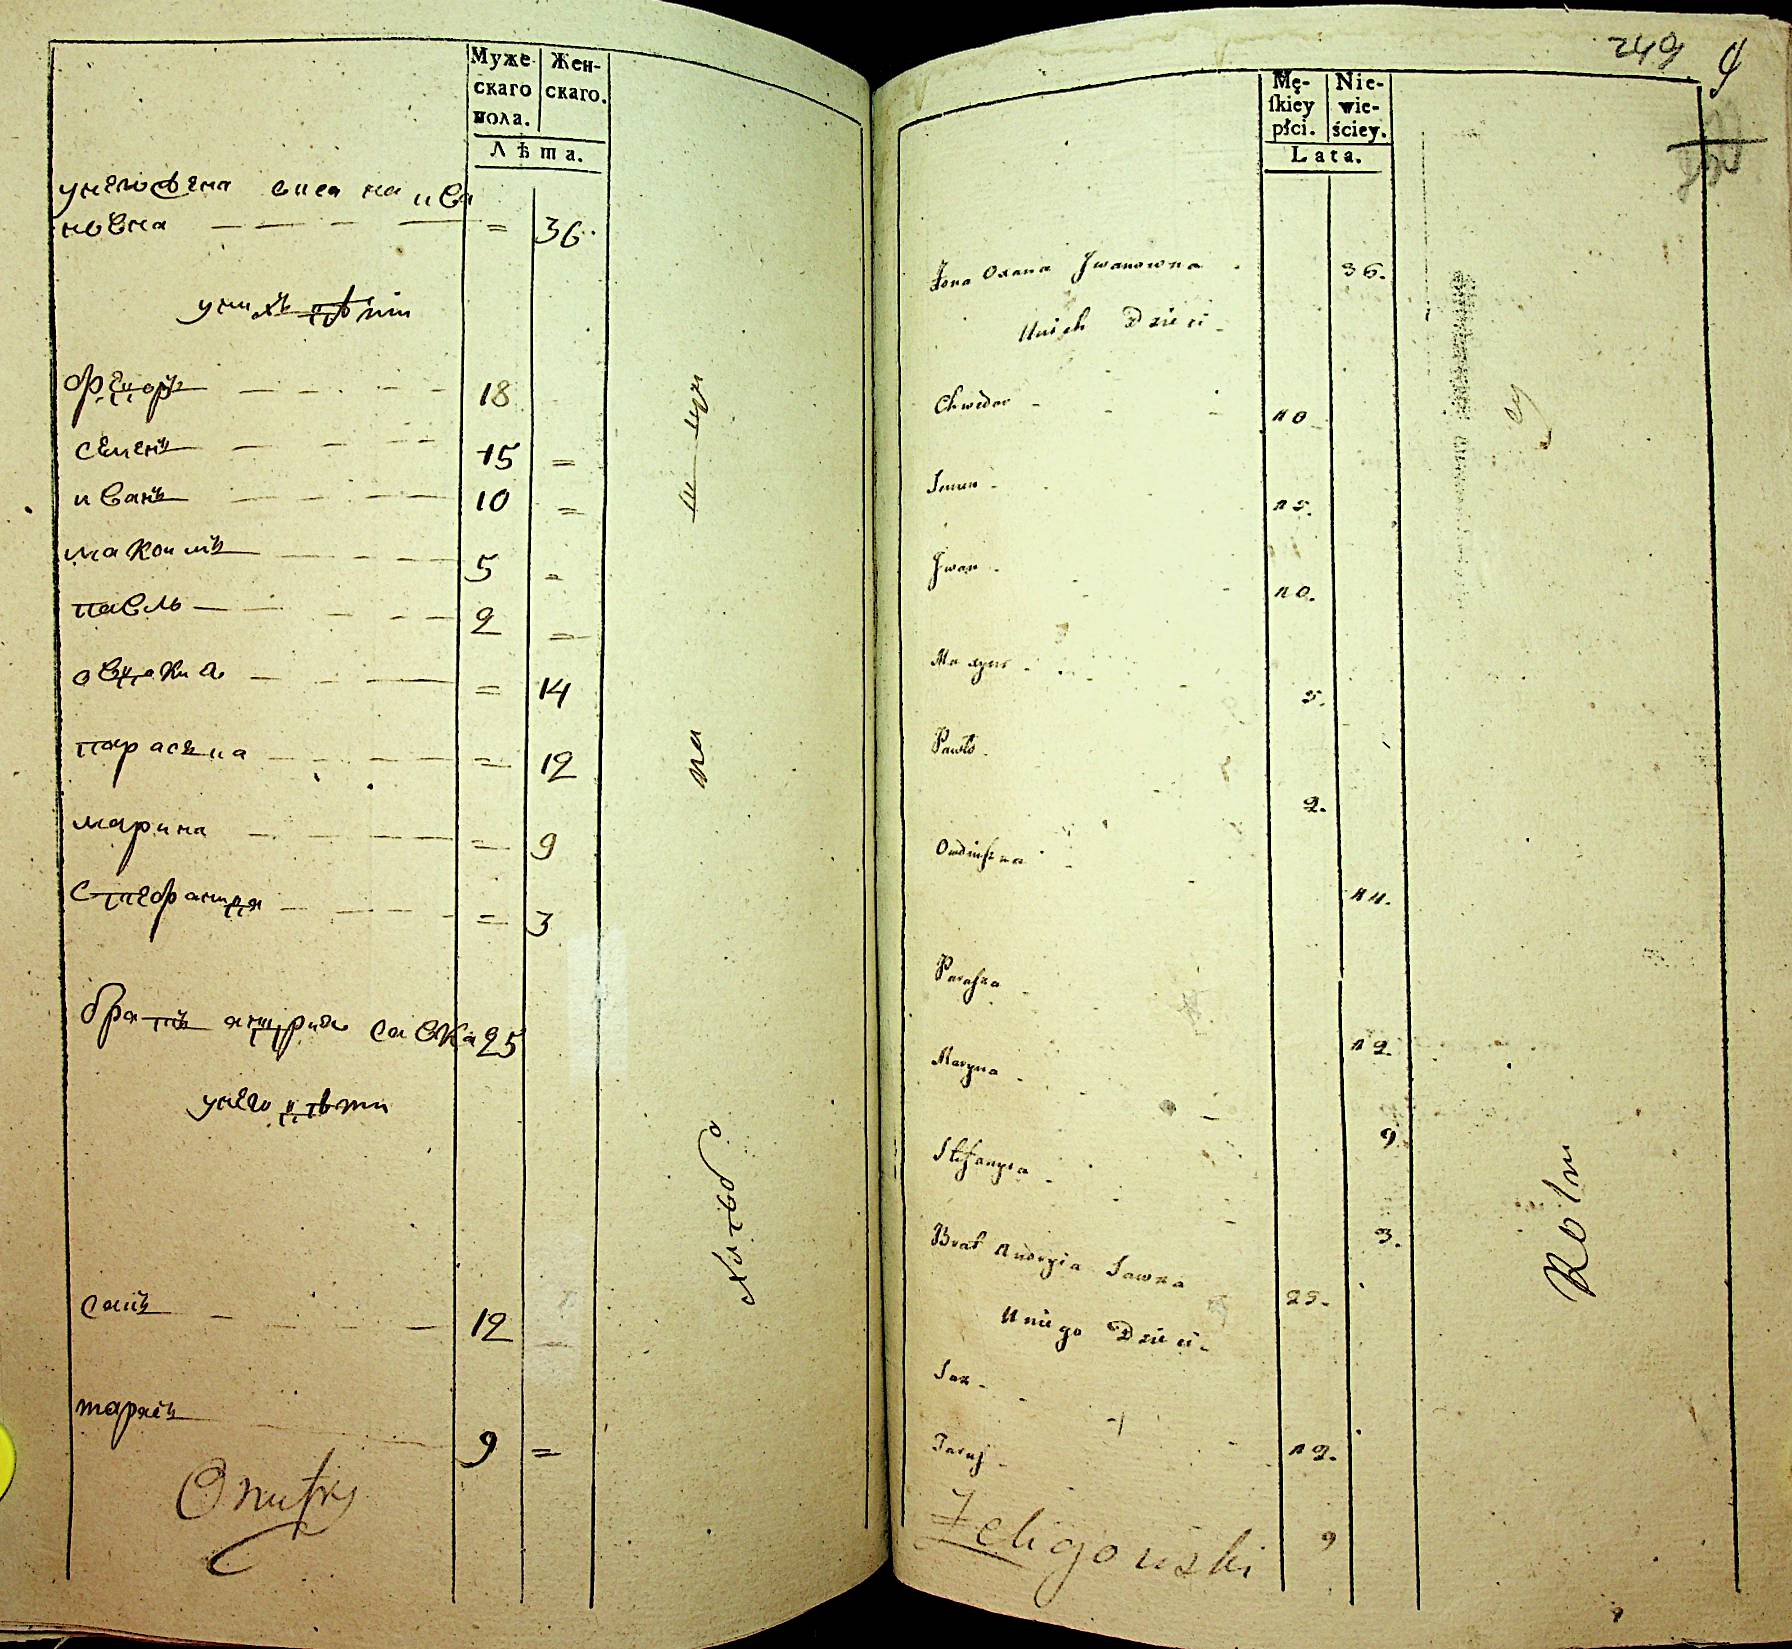 Муже-
скаго
пола.
Жен-
скаго.
Лѣта.
унего жена оксана ива
новна = 36
уних дѣти
ѳедоръ 18
семенъ 15 =
иванъ 10 =
максимъ 5 =
павлъ 2 =
овдокия = 14
параска = 12
марина = 9
стефанидя = 3
братъ андрия савка 25
унего дѣти
сакъ 12
тарасъ 9 =
249
Mę-
ſkiey
płci.
Nie-
wie-
ściey.
Lata.
Żona Oxana Jwanowna 36.
Unich Dzieci
Chwedor 18
Semen 15.
Jwan 10.
Maxym 5.
Pawło 2.
Owdiuszka 14.
Paraszka 12
Maryna 9.
Stefanyia 3.
Brat Andryia Sawka 25.
Uniego Dzieci
Sak 12.
Taras 9
Żeligowski
Roln